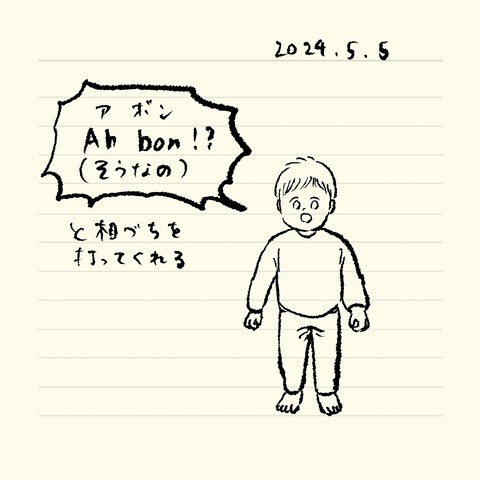 2024.5.5
ア ボン
Ah bon!?
(そうなの)
と相づちを
打ってくれる